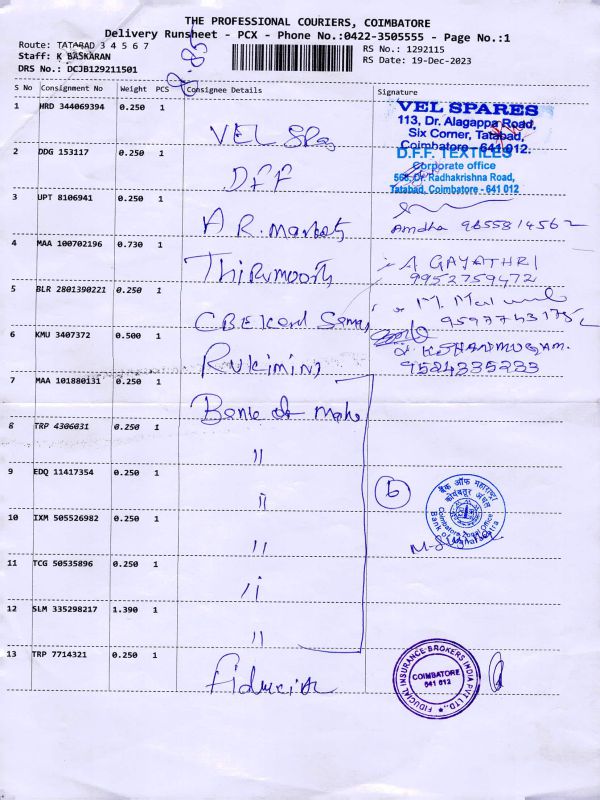 THE PROFESSIONAL COURIERS, COIMBATORE
Delivery Runsheet - PCX - Phone No.:0422-3505555 - Page No.:1
Route: TATABAD 3 4 5 6 7
Staff: K BASKARAN
DRS No.: DCJB129211501
RS No.: 1292115
RS Date: 19-Dec-2023
S No Consignment No Weight PCS Consignee Details Signature
1 HRD 344069394 0.250 1
VEL
VEL SPARES
113, Dr. Alagappa Road,
Six Corner, Tatabad,
Coimbatore - 641 012.
2 DDG 153117 0.250 1
DFF
D.F.F. TEXTILES
Corporate office
Dr. Radhakrishna Road,
Tatabad, Coimbatore - 641 012
3 UPT 8106941 0.250 1
A R. Market
Amdha
4 MAA 100702196 0.730 1
Thirumoorthy
A GAYATHRI
9952759472
5 BLR 2801390221 0.250 1
M.
6 KMU 3407372 0.500 1
Rukimini
7 MAA 101880131 0.250 1
Bank of Maha
8 TRP 4306031 0.250 1
"
9 EDQ 11417354 0.250 1
"
b
बैंक ऑफ महाराष्ट्र
कोयंबतूर अंचल
Coimbatore Zonal Office
Bank of Maharashtra
10 IXM 505526982 0.250 1
"
11 TCG 50535896 0.250 1
"
12 SLM 335298217 1.390 1
"
13 TRP 7714321 0.250 1
Fiducial
FIDUCIAL INSURANCE BROKERS INDIA PVT LTD.,
COIMBATORE
641 012